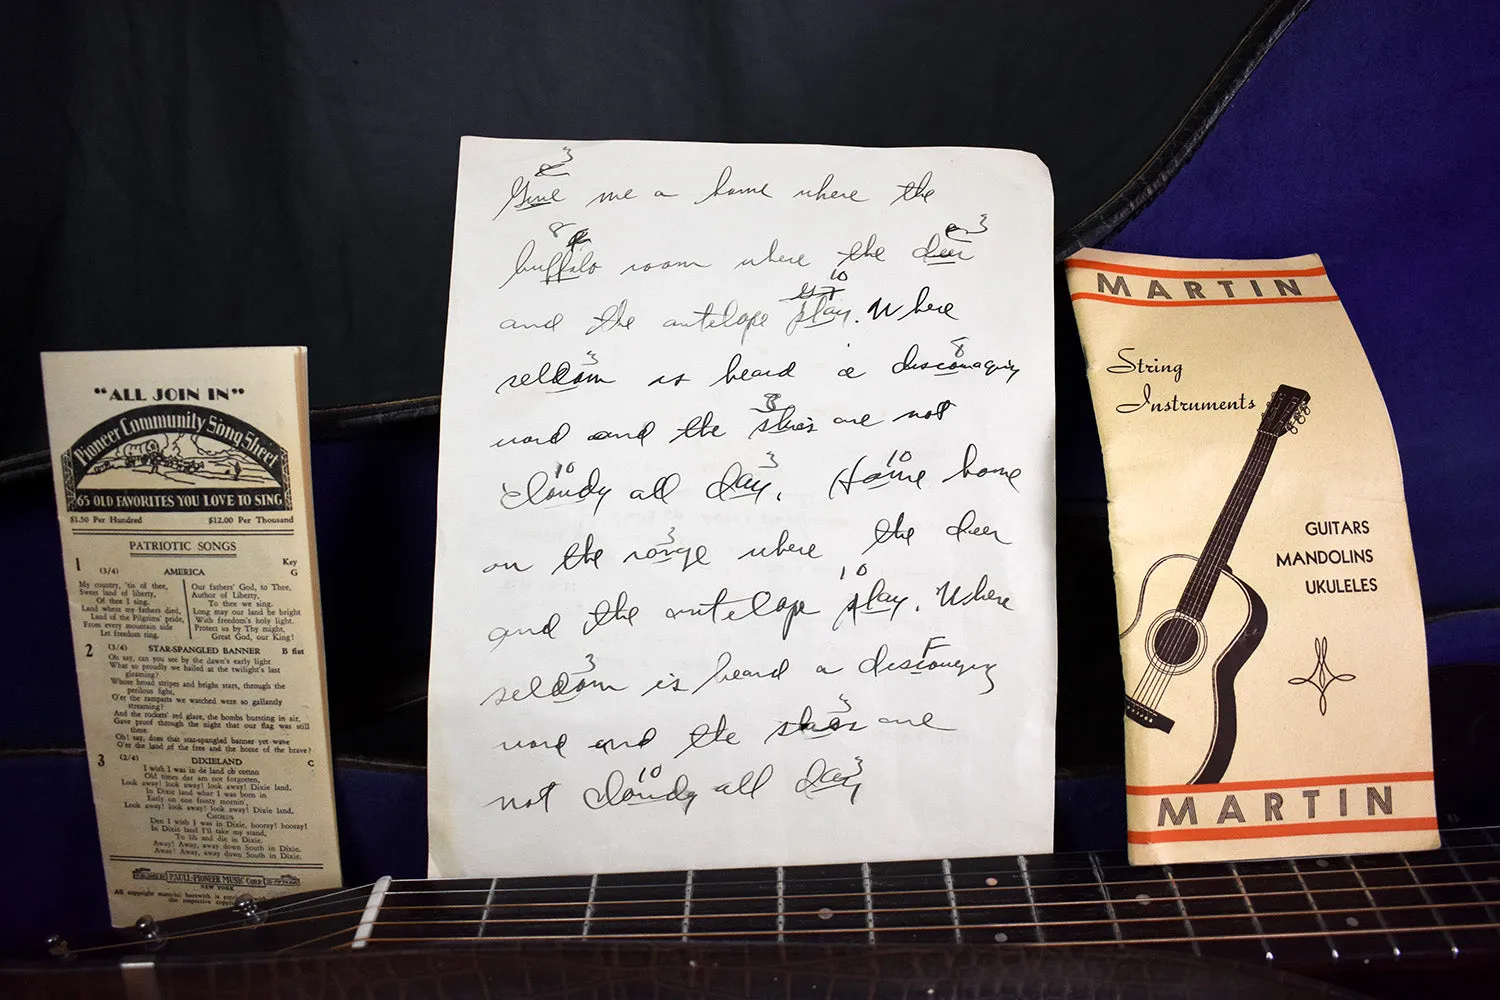 "ALL JOIN IN"
Pioneer Community Song Sheet
65 OLD FAVORITES YOU LOVE TO SING
$1.50 Per Hundred $12.00 Per Thousand
PATRIOTIC SONGS
1 (3/4) AMERICA Key G
My country, 'tis of thee,
Sweet land of liberty,
Of thee I sing.
Land where my fathers died,
Land of the Pilgrims' pride,
From every mountain side
Let freedom ring.
Our fathers' God, to Thee,
Author of Liberty,
To thee we sing.
Long may our land be bright
With freedom's holy light.
Protect us by Thy might,
Great God, our King!
2 (3/4) STAR-SPANGLED BANNER B flat
Oh say, can you see by the dawn's early light
What so proudly we hailed at the twilight's last
gleaming?
Whose broad stripes and bright stars, through the
perilous fight,
O'er the ramparts we watched were so gallantly
streaming?
And the rockets' red glare, the bombs bursting in air,
Gave proof through the night that our flag was still
there.
Oh! say, does that star-spangled banner yet wave
O'er the land of the free and the home of the brave?
3 (2/4) DIXIELAND C
I wish I was in de land ob cotton
Old times dar am not forgotten,
Look away! look away! look away! Dixie land.
In Dixie land what I was born in
Early on one frosty mornin',
Look away! look away! look away! Dixie land.
CHORUS
Den I wish I was in Dixie, hooray! hooray!
In Dixie land I'll take my stand,
To lib and die in Dixie.
Away! Away, away down South in Dixie.
Away! Away, away down South in Dixie.
PAULL-PIONEER MUSIC CORP
NEW YORK
3
Give me a home where the
8 3
buffalo roam where the deer
10
and the antelope play. Where
3 8
seldom is heard a discouraging
8
word and the skies are not
10 3
cloudy all day. Home home
3
on the range where the deer
10
and the antelope play. Where
3 F
seldom is heard a discouraging
3
word and the skies are
10 3
not cloudy all day
MARTIN
String
Instruments
GUITARS
MANDOLINS
UKULELES
MARTIN